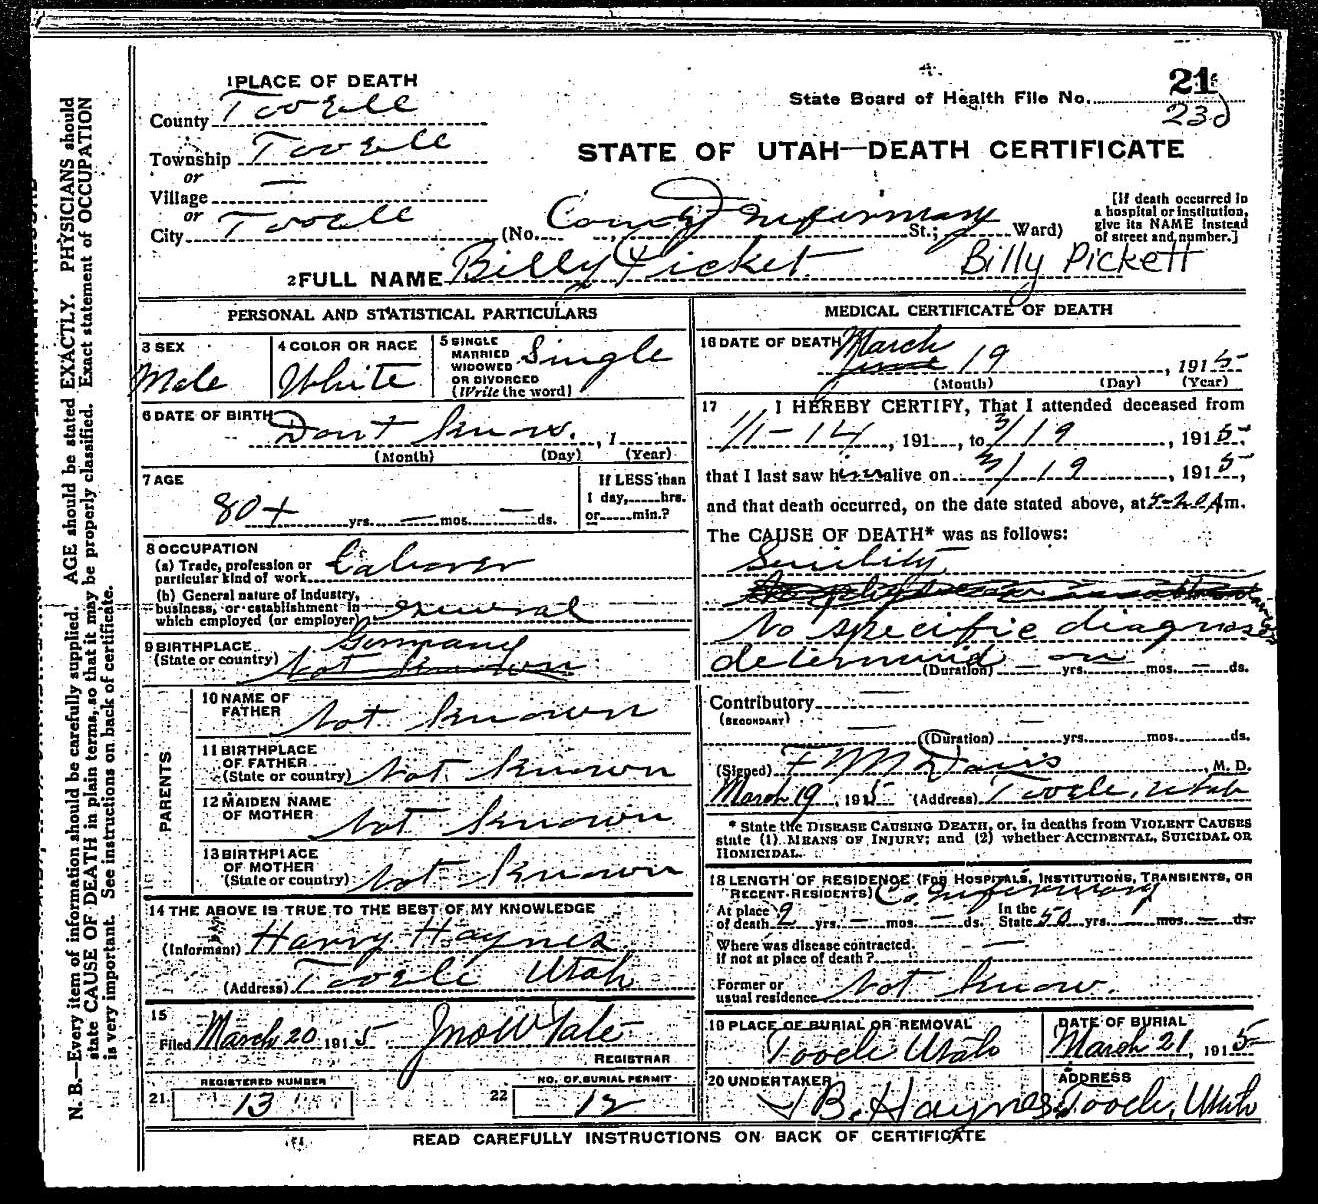 1 PLACE OF DEATH
County Tooele
Township Tooele
or
Village —
or
City Tooele (No. County Infirmary St.; Ward)
State Board of Health File No. 21
230
STATE OF UTAH—DEATH CERTIFICATE
[If death occurred in
a hospital or institution,
give its NAME instead
of street and number.]
2 FULL NAME Billy Picket Billy Pickett
PERSONAL AND STATISTICAL PARTICULARS
3 SEX Male
4 COLOR OR RACE White
5 SINGLE
MARRIED
WIDOWED
OR DIVORCED
(Write the word) Single
6 DATE OF BIRTH Dont know. , 1
(Month) (Day) (Year)
7 AGE
80+ yrs. — mos. — ds.
If LESS than
1 day, hrs.
or min.?
8 OCCUPATION
(a) Trade, profession or
particular kind of work Laborer
(b) General nature of Industry,
business, or establishment in
which employed (or employer) general
9 BIRTHPLACE
(State or country) Germany
Not Known
PARENTS
10 NAME OF
FATHER Not Known
11 BIRTHPLACE
OF FATHER
(State or country) Not Known
12 MAIDEN NAME
OF MOTHER Not Known
13 BIRTHPLACE
OF MOTHER
(State or country) Not Known
14 THE ABOVE IS TRUE TO THE BEST OF MY KNOWLEDGE
(Informant) Harry Haynes
(Address) Tooele Utah
15
Filed March 20 1915. Jno W Tate
REGISTRAR
REGISTERED NUMBER
21 13
NO. OF BURIAL PERMIT
22 12
MEDICAL CERTIFICATE OF DEATH
16 DATE OF DEATH March
June 19, 1915
(Month) (Day) (Year)
17 I HEREBY CERTIFY, That I attended deceased from
1/1-14, 191 , to 3/19, 1915,
that I last saw him alive on 3/19, 1915,
and that death occurred, on the date stated above, at Am.
The CAUSE OF DEATH* was as follows:
Senility
No specific diagnoses
determined
(Duration) — yrs. — mos. — ds.
Contributory —
(SECONDARY)
(Duration) yrs. mos. ds.
(Signed) F M Davis, M. D.
March 19, 1915 (Address) Tooele, Utah
* State the DISEASE CAUSING DEATH, or, in deaths from VIOLENT CAUSES
state (1) MEANS OF INJURY; and (2) whether ACCIDENTAL, SUICIDAL OR
HOMICIDAL.
18 LENGTH OF RESIDENCE (FOR HOSPITALS, INSTITUTIONS, TRANSIENTS, OR
RECENT RESIDENTS) Co Infirmary
At place
of death 2 yrs. — mos. — ds. In the
State 50 yrs. — mos. — ds.
Where was disease contracted
If not at place of death? —
Former or
usual residence Not Know.
19 PLACE OF BURIAL OR REMOVAL
Tooele Utah
DATE OF BURIAL
March 21, 1915
20 UNDERTAKER
B. Haynes
ADDRESS
Tooele, Utah
READ CAREFULLY INSTRUCTIONS ON BACK OF CERTIFICATE
N. B.—Every item of information should be carefully supplied. AGE should be stated EXACTLY. PHYSICIANS should
state CAUSE OF DEATH in plain terms, so that it may be properly classified. Exact statement of OCCUPATION
is very important. See instructions on back of certificate.